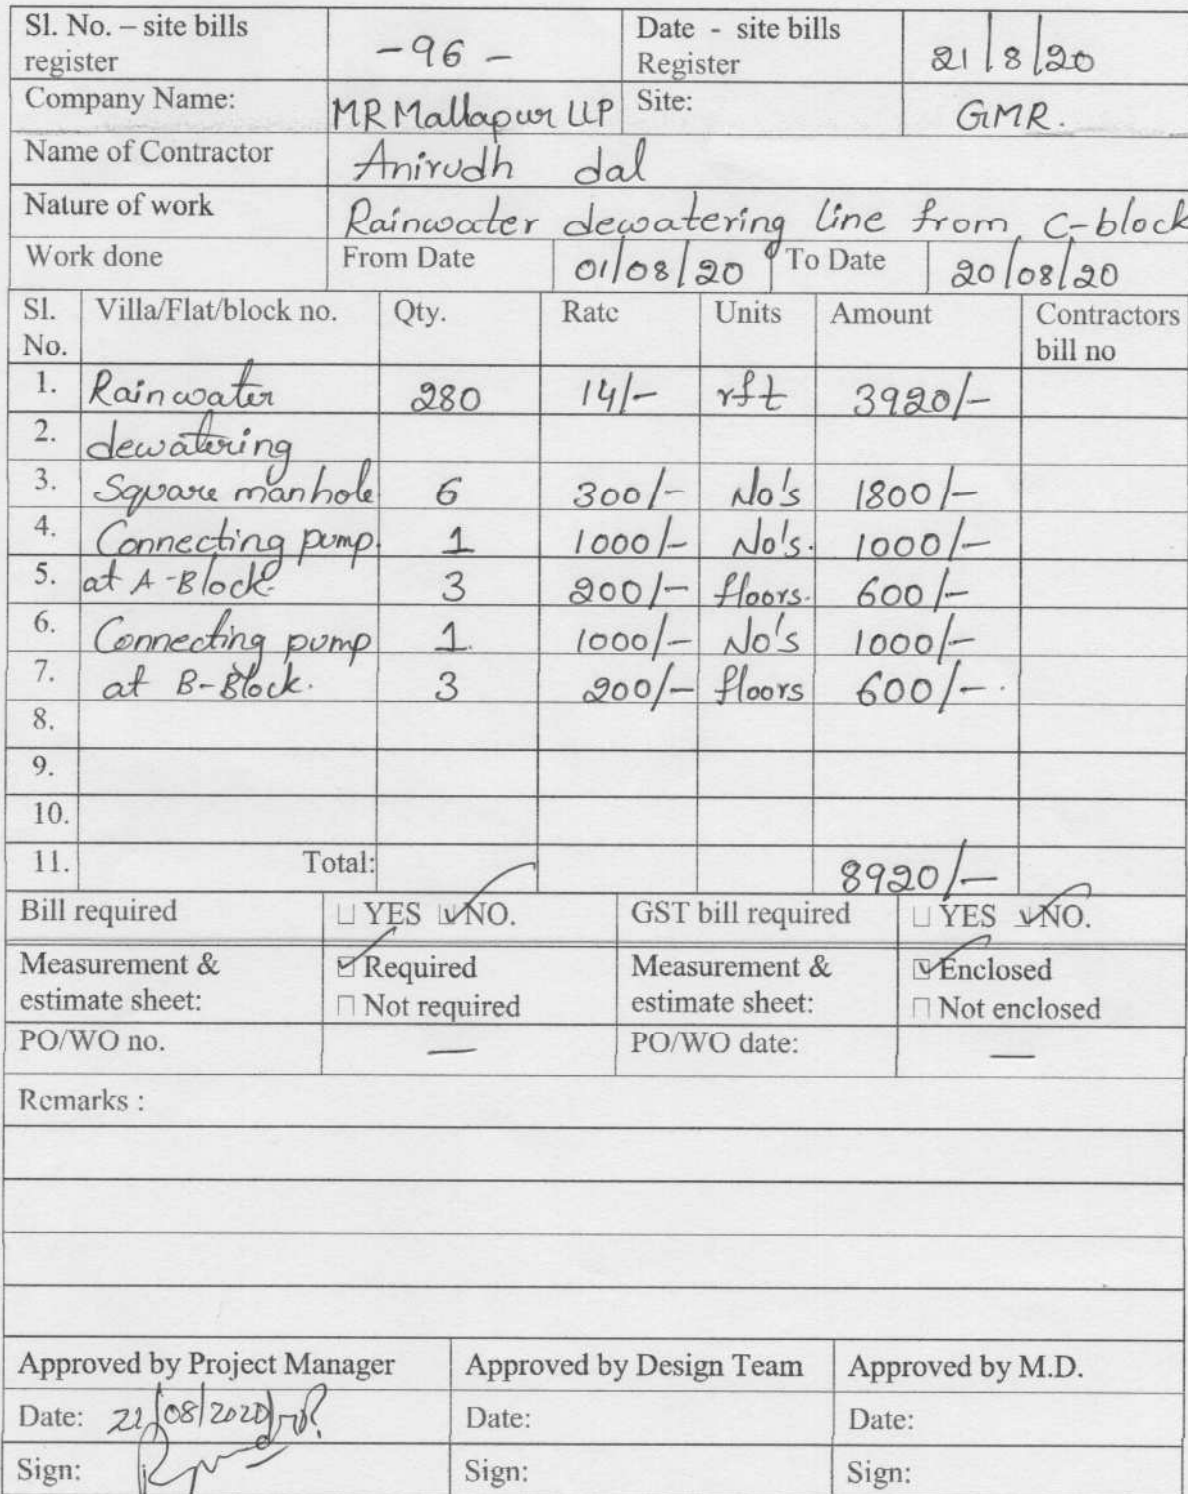 Sl. No. – site bills register -96- Date - site bills Register 21/8/20
Company Name: MR Mallapur LLP Site: GMR.
Name of Contractor Anirudh dal
Nature of work Rainwater dewatering line from C-block
Work done From Date 01/08/20 To Date 20/08/20
Sl. No. Villa/Flat/block no. Qty. Rate Units Amount Contractors bill no
1. Rainwater 280 14/- rft 3920/-
2. dewatering
3. Square manhole 6 300/- No's 1800/-
4. Connecting pump 1 1000/- No's. 1000/-
5. at A-Block. 3 200/- floors. 600/-
6. Connecting pump 1 1000/- No's 1000/-
7. at B-Block. 3 200/- floors 600/-
8.
9.
10.
11. Total: 8920/-
Bill required YES NO. GST bill required YES NO.
Measurement & estimate sheet: Required Not required Measurement & estimate sheet: Enclosed Not enclosed
PO/WO no. — PO/WO date: —
Remarks :
Approved by Project Manager Approved by Design Team Approved by M.D.
Date: 22/08/2020 Date: Date:
Sign: Sign: Sign: